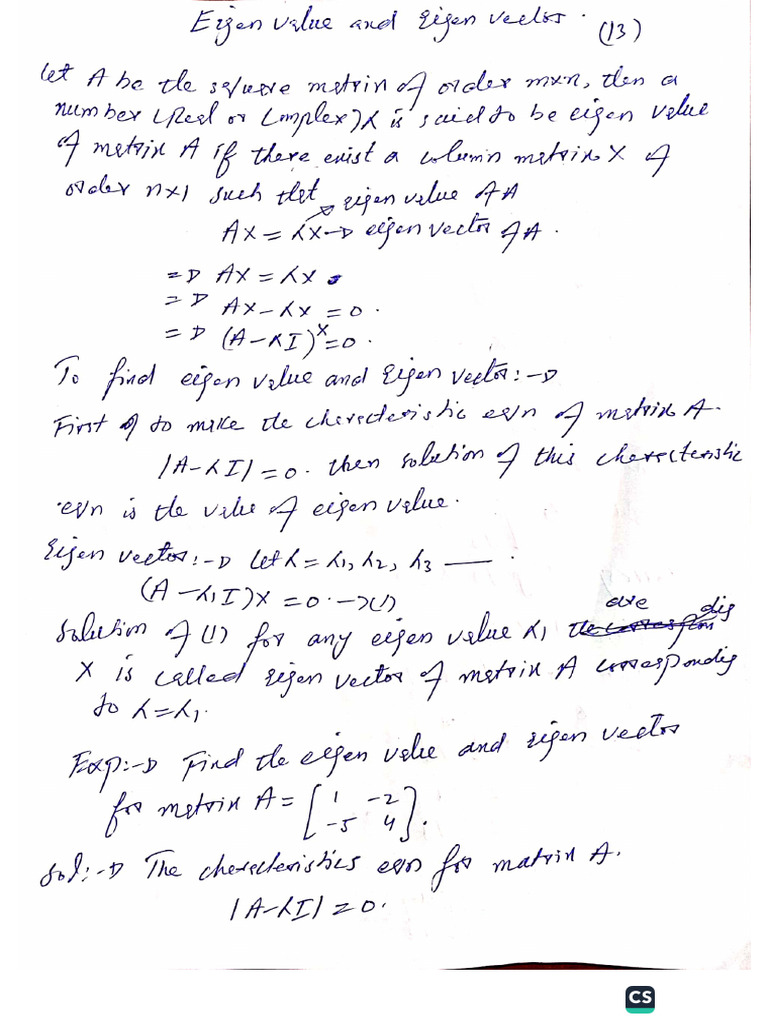 Eigen value and Eigen vector. (13)
Let A be the square matrix of order m×n, then a
number (Real or Complex) λ is said to be eigen value
of matrix A if there exist a column matrix X of
order n×1 such that eigen value of A
AX = λX → eigen vector of A.
⇒ AX = λX
⇒ AX - λX = 0.
⇒ (A - λI)X = 0.
To find eigen value and Eigen vector:→
First of to make the characteristic eqn of matrix A.
|A - λI| = 0. then solution of this characteristic
eqn is the value of eigen value.
Eigen vector:→ Let λ = λ1, λ2, λ3 —— .
(A - λ1I)X = 0. →(1)
Solution of (1) for any eigen value λ1 are dig
X is called eigen vector of matrix A correspondig
to λ = λ1.
Exp:→ Find the eigen value and eigen vector
for matrix A = [1 -2
-5 4].
Sol:→ The characteristics eqn for matrix A.
|A - λI| = 0.
CS